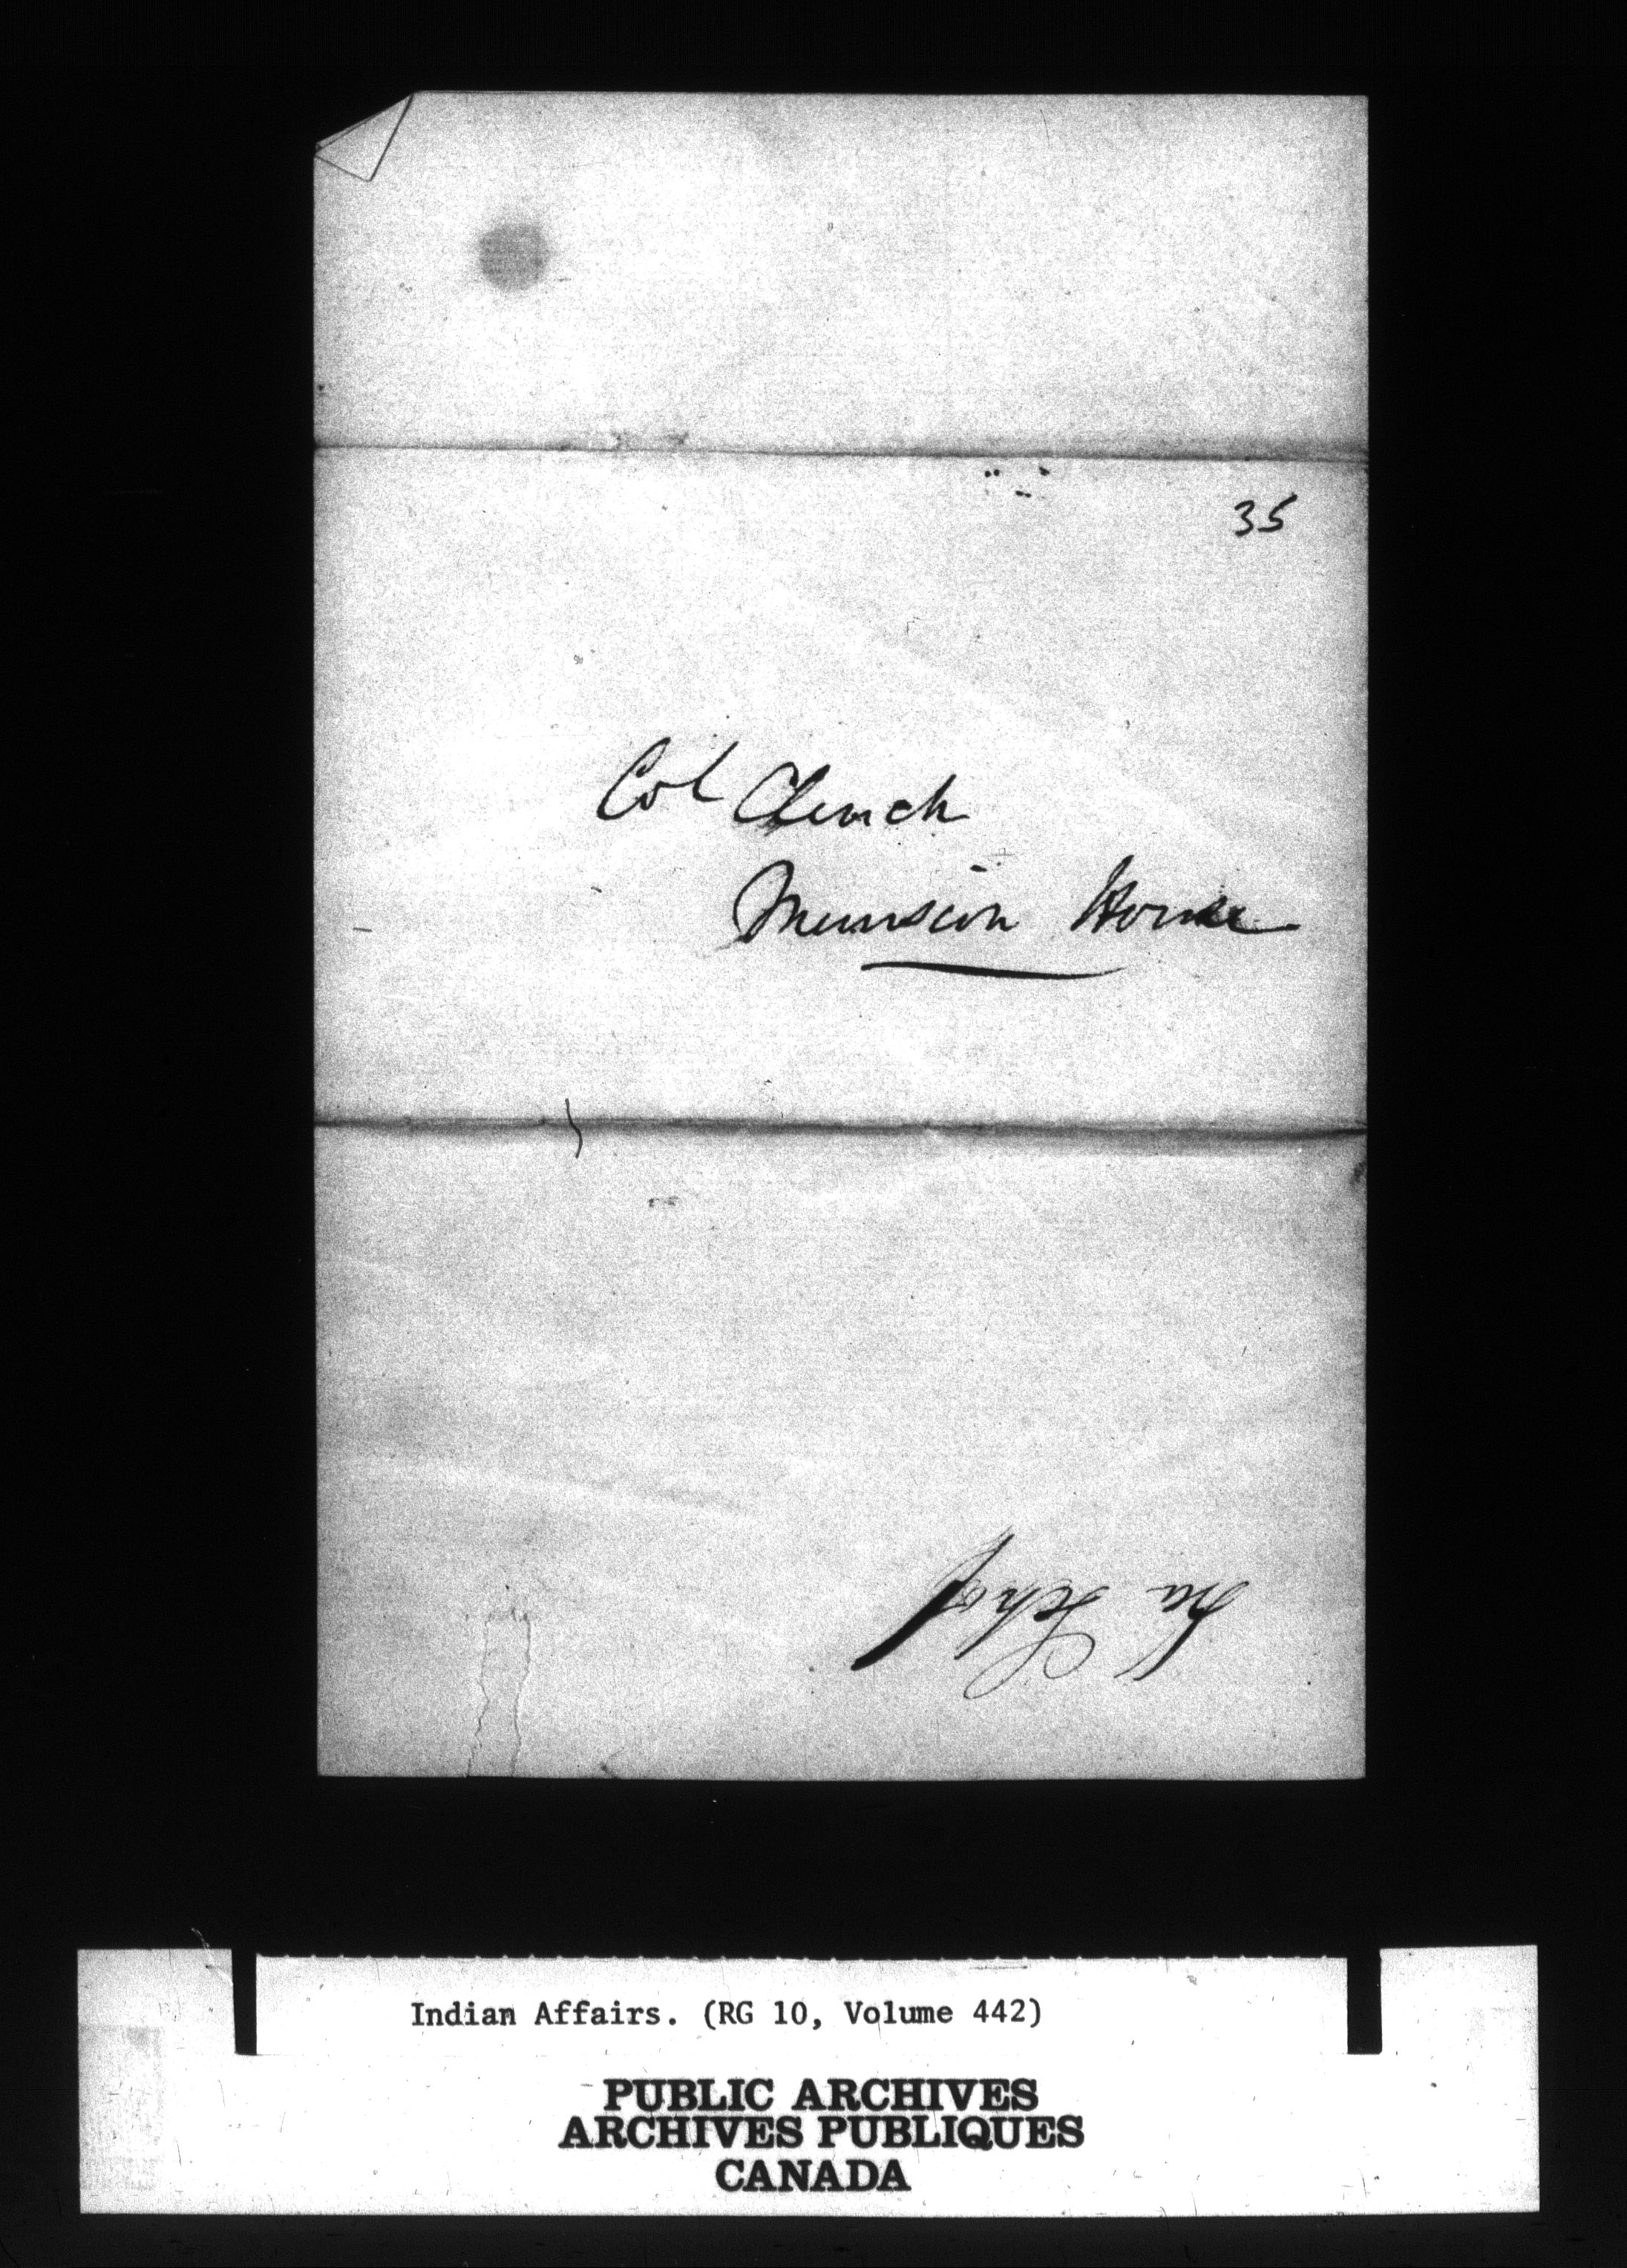 35
Col Clench
Munsion House
Ira Schof
Indian Affairs. (RG 10, Volume 442)
PUBLIC ARCHIVES
ARCHIVES PUBLIQUES
CANADA